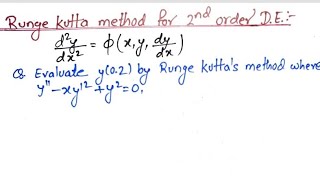 Runge kutta method for 2nd order D.E.:-
d²y/dx² = ϕ(x, y, dy/dx)
Q. Evaluate y(0.2) by Runge kutta's method where
y'' - xy'² + y² = 0,